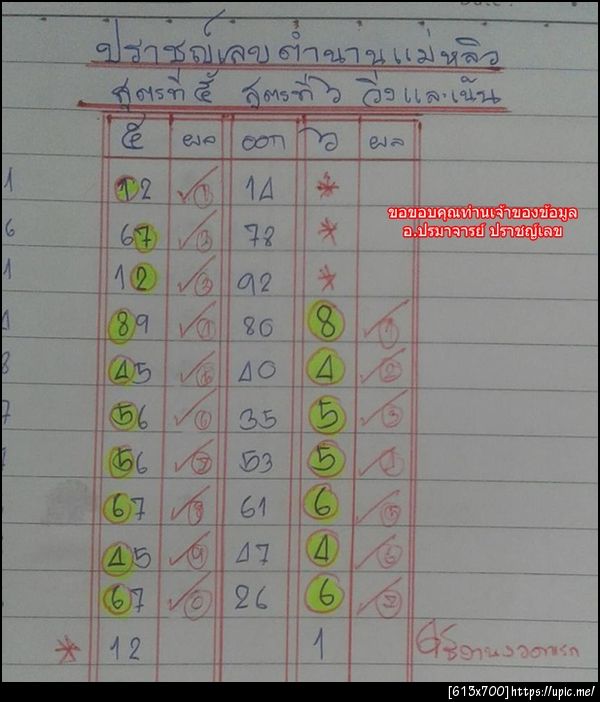 ปราชญ์เลขตำนานแม่หลิว
สูตรที่ ๕ สูตรที่ ๖ วิ่งและเน้น
๕ ผล ออก ๖ ผล
1 12 ✓① 14 *
ขอขอบคุณท่านเจ้าของข้อมูล
อ.ปรมาจารย์ ปราชญ์เลข
6 67 ✓ 78 *
1 12 ✓③ 92 *
4 89 ✓ 86 8 ✓
8 45 ✓ 40 4 ✓②
7 56 ✓⑥ 35 5 ✓③
56 ✓ 53 5 ✓
67 ✓⑧ 61 6 ✓⑤
45 ✓⑨ 47 4 ✓⑥
67 ✓⓪ 26 6 ✓
* 12 1
[613x700]https://upic.me/